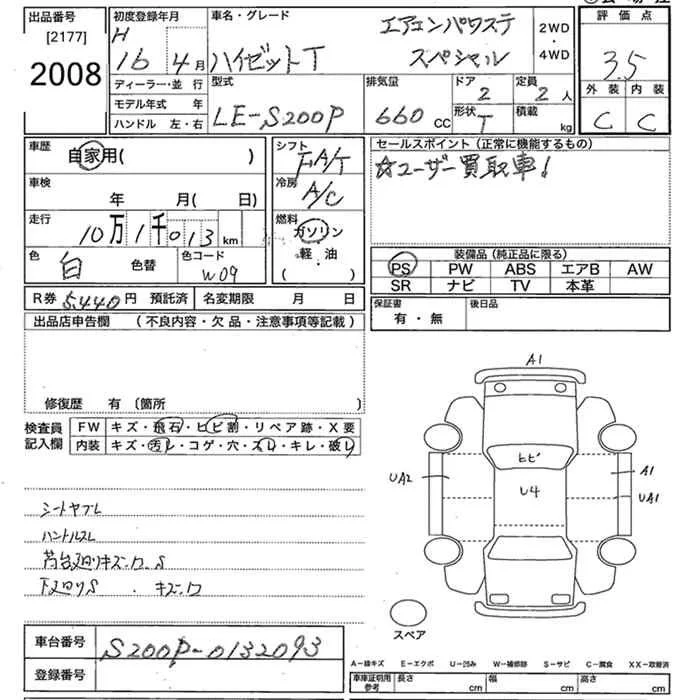 出品番号
[2177]
2008
初度登録年月
H
16年 4月
車名・グレード
ハイゼットT
エアコンパワステ
スペシャル
2WD
・
4WD
評価点
3.5
外装 内装
C C
ディーラー・並 行
モデル年式 年
ハンドル 左・右
型式
LE-S200P
排気量
660 CC
ドア
2
形状
T
定員
2人
積載
kg
車歴
自家用( )
車検
年 月( 日)
走行
10万1千013 km
色
白
色替
色コード
W09
シフト
FA/T
冷房
A/C
燃料
ガソリン
軽・油
( )
セールスポイント(正常に機能するもの)
☆ユーザー買取車!
装備品(純正品に限る)
PS PW ABS エアB AW
SR ナビ TV 本革
R券 5,440円 預託済 名変期限 月 日
保証書
有・無
後日品
出品店申告欄 (不良内容・欠品・注意事項等記載)
修復歴 有 (箇所 )
検査員
記入欄
FW キズ・飛石・ヒビ割・リペア跡・X要
内装 キズ・汚レ・コゲ・穴・スレ・キレ・破レ
シートヤブレ
ハンドルスレ
荷台廻りキズ・凹・S
下廻りS ・ キズ・凹
A1
ヒビ
UA2
U4
A1
UA1
スペア
車台番号
S200P-0132093
登録番号
A-線キズ E-エクボ U-凹み W-補修跡 S-サビ C-腐食 XX-取替済
車庫証明用
参考
長さ cm
幅 cm
高さ cm